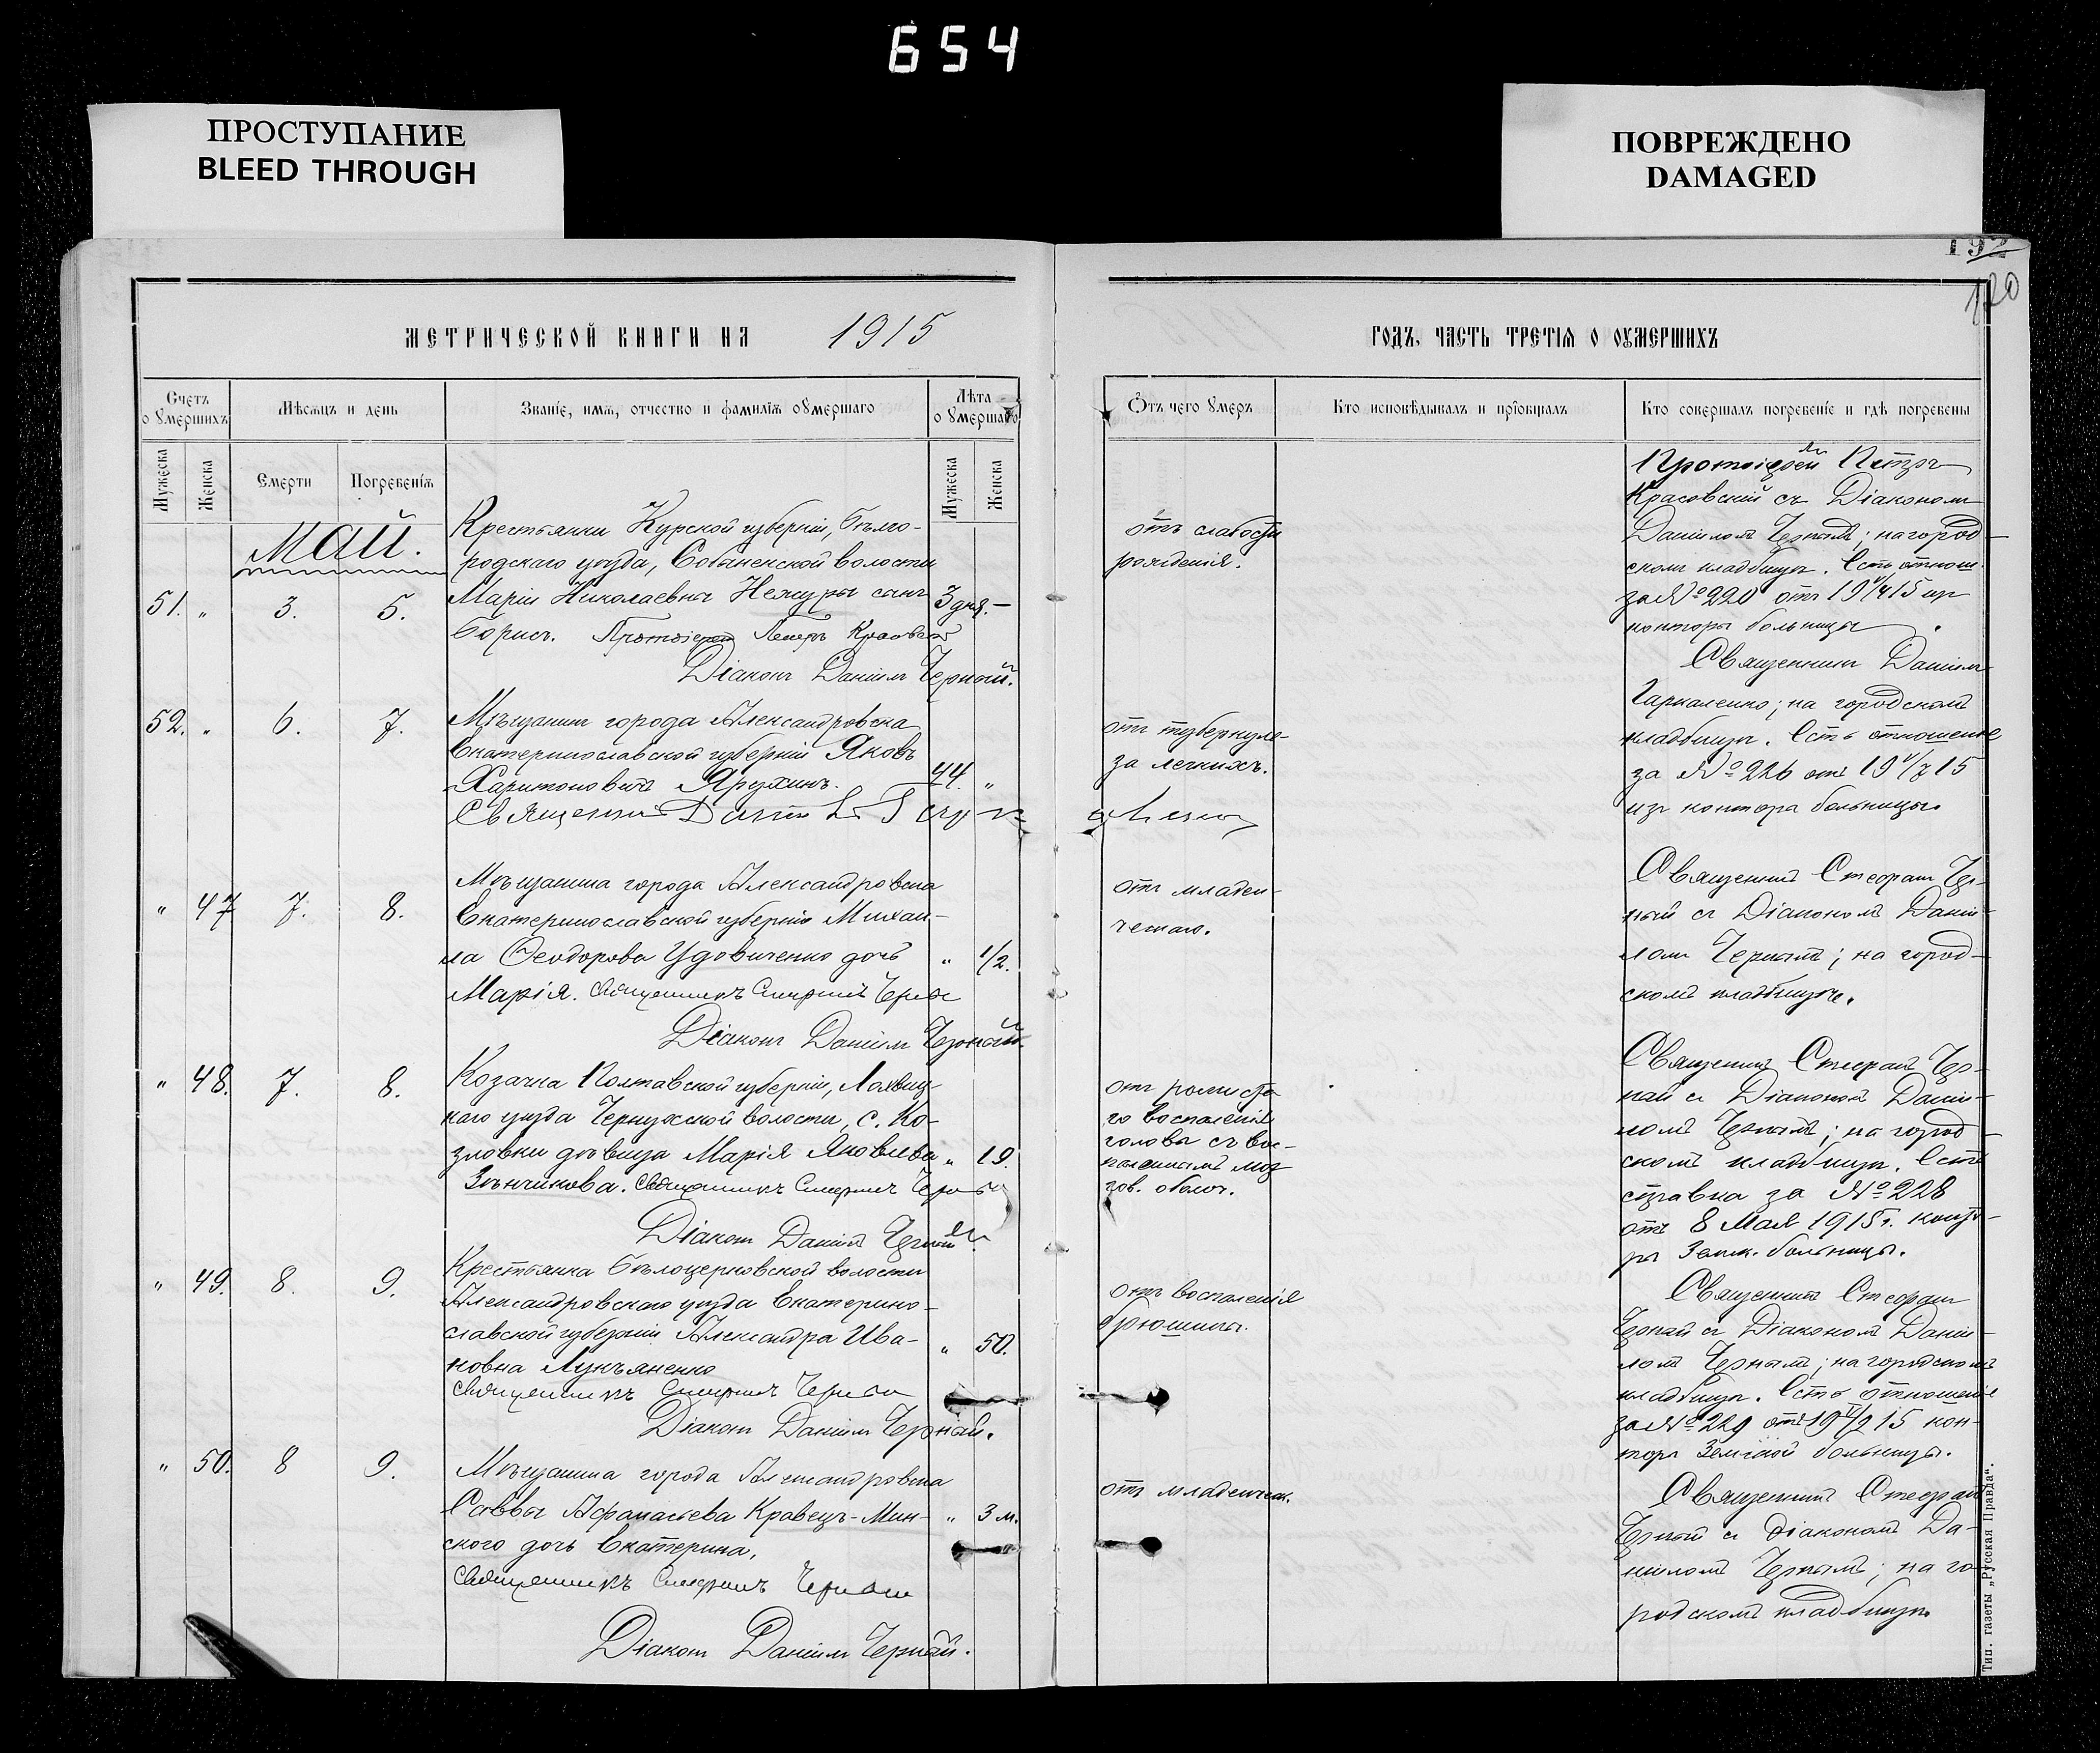 654
ПРОСТУПАНИЕ
BLEED THROUGH
ПОВРЕЖДЕНО
DAMAGED
192
120
МЕТРИЧЕСКОЙ КНИГИ НА 1915
ГОДЪ, ЧАСТЬ ТРЕТІѦ О ОУМЕРШИХЪ
Счетъ
о Ꙋмершихъ
Мѣсѧцъ и день
Званїе, имѧ, отчество и фамилїѧ оумершаго
Лѣта
о Ꙋмершаго
Ѿтъ чего Ꙋмеръ
Кто исповѣдывалъ и прїобщалъ
Кто совершалъ погребенїе и гдѣ погребены
Мужеска
Женска
Смерти
Погребенїѧ
Мужеска
Женска
Май.
51. " 3. 5.
Крестьянки Курской губерніи, Бѣлго-
родскаго уѣзда, волости
Маріи Николаевны сынъ
Борисъ. Протоіерей Петръ Красовскій
Діаконъ Даніилъ Черный.
3 дня. –
отъ слабости
рожденія.
Протоіерей Петръ
Красовскій съ Діакономъ
Даніиломъ Чернымъ; на город-
скомъ кладбищѣ. Есть отнош.
за № 220 отъ 19 V/4 15 изъ
конторы больницы.
52. " 6. 7.
Мѣщанинъ города Александровска
Екатеринославской губерніи Яковъ
Харитоновичъ Ярухинъ.
Священникъ Даніилъ Гаркаленко
44. "
отъ туберкуле-
за легкихъ.
Священникъ Даніилъ
Гаркаленко; на городскомъ
кладбищѣ. Есть отношеніе
за № 226 отъ 19 V/7 15
изъ конторы больницы.
" 47 7. 8.
Мѣщанина города Александровска
Екатеринославской губерніи Михаи-
ла Ѳеодорова Удовиченко дочь
Марія. Священникъ Стефанъ Черный
Діаконъ Даніилъ Черный.
" 1/2.
отъ младен-
ческаго.
Священникъ Стефанъ Чер-
ный съ Діакономъ Дании-
ломъ Чернымъ; на город-
скомъ кладбищѣ.
" 48. 7. 8.
Козачка Полтавской губерніи, Лохвиц-
каго уѣзда Чернухской волости, с. Ко-
зловки дѣвица Марія Яковлева
Зѣнчикова. Священникъ Стефанъ Черный
Діаконъ Даніилъ Черный.
" 19.
отъ рожиста
го воспаленія
головы съ вос-
паленіемъ моз
гов. оболоч.
Священникъ Стефанъ Чер-
ный съ Діакономъ Дании-
ломъ Чернымъ; на город-
скомъ кладбищѣ. Есть
справка за № 228
отъ 8 Мая 1915 г. конто-
ры Земск. больницы.
" 49. 8. 9.
Крестьянка Бѣлоцерковской волости
Александровскаго уѣзда Екатерино-
славской губерніи Александра Ива-
новна Лукьяненко
Священникъ Стефанъ Черный
Діаконъ Даніилъ Черный.
" 50.
отъ воспаленія
брюшины.
Священникъ Стефанъ
Черный съ Діакономъ Дании-
ломъ Чернымъ; на городскомъ
кладбищѣ. Есть отношеніе
за № 229 отъ 19 V/9 15 кон-
торы Земской больницы.
" 50. 8 9.
Мѣщанина города Александровска
Саввы Аѳанасьева Кравецъ-Мин-
ского дочь Екатерина.
Священникъ Стефанъ Черный
Діаконъ Даніилъ Черный.
" 3 м.
отъ младенческ.
Священникъ Стефанъ
Черный съ діакономъ Да-
ниломъ Чернымъ; на го
родскомъ кладбищѣ
Тип. газеты „Русская Правда".